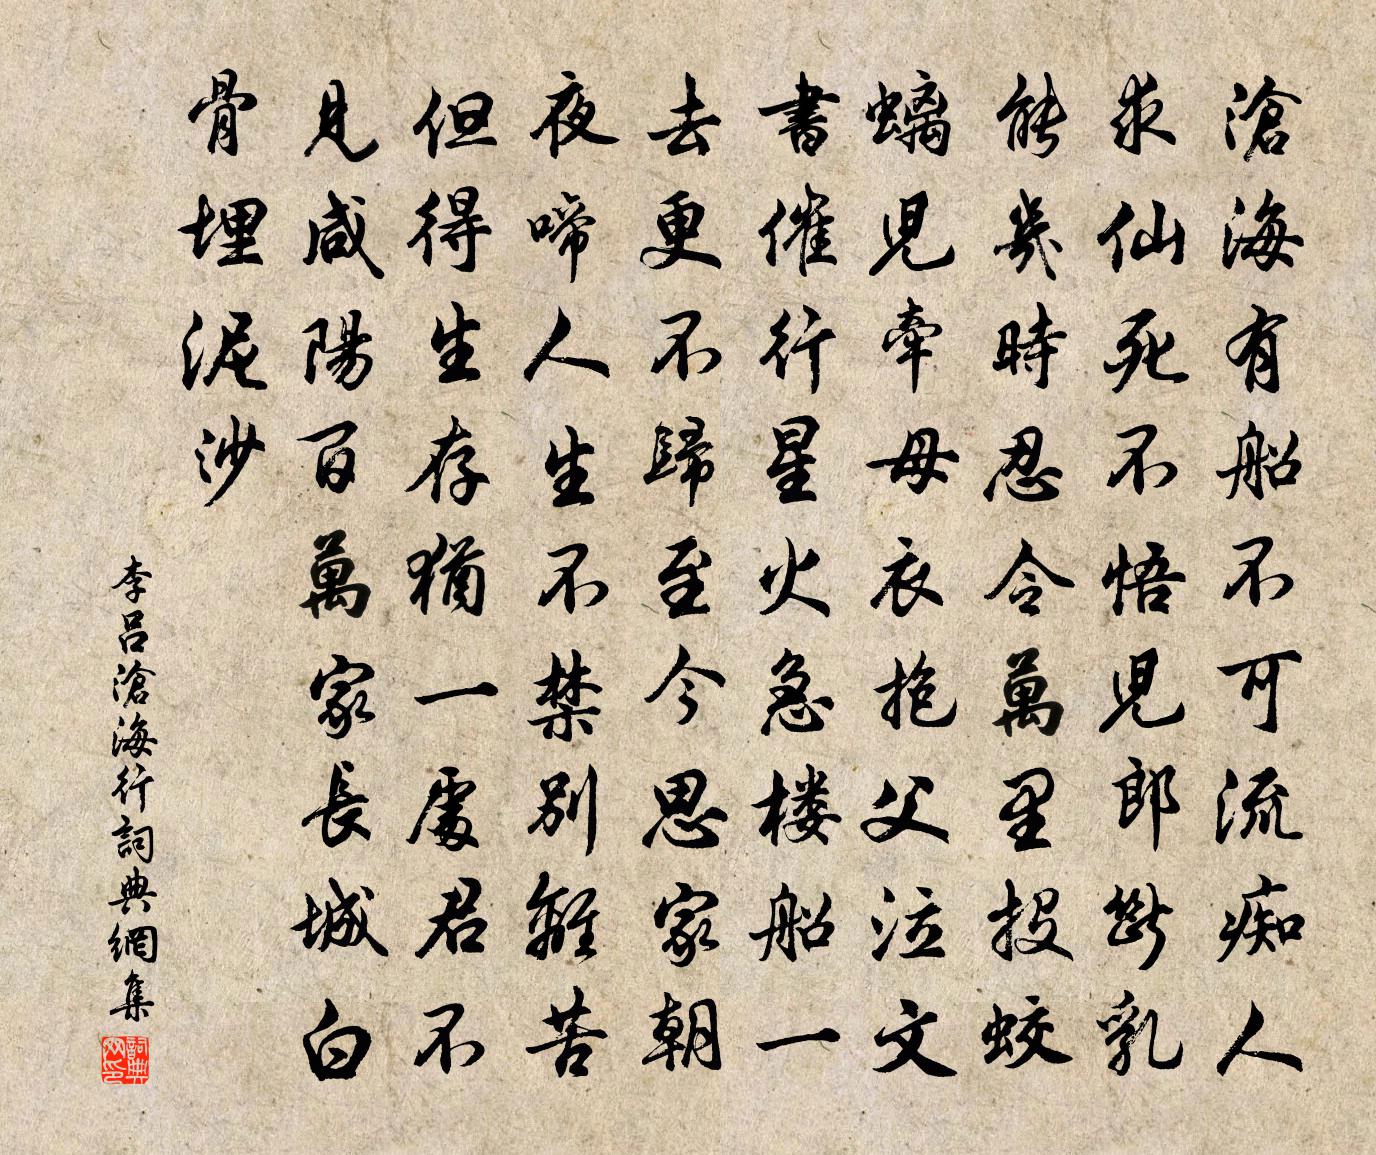 滄海有船不可流痴人
求仙死不悟兒郎斷乳
能幾時忍令萬里投蛟
螭兒牽母衣抱父泣文
書催行星火急楼船一
去更不歸至今思家朝
夜啼人生不禁別離苦
但得生存猶一處君不
見咸陽百萬家長城白
骨埋泥沙
李呂滄海行詞典網集
詞典網印